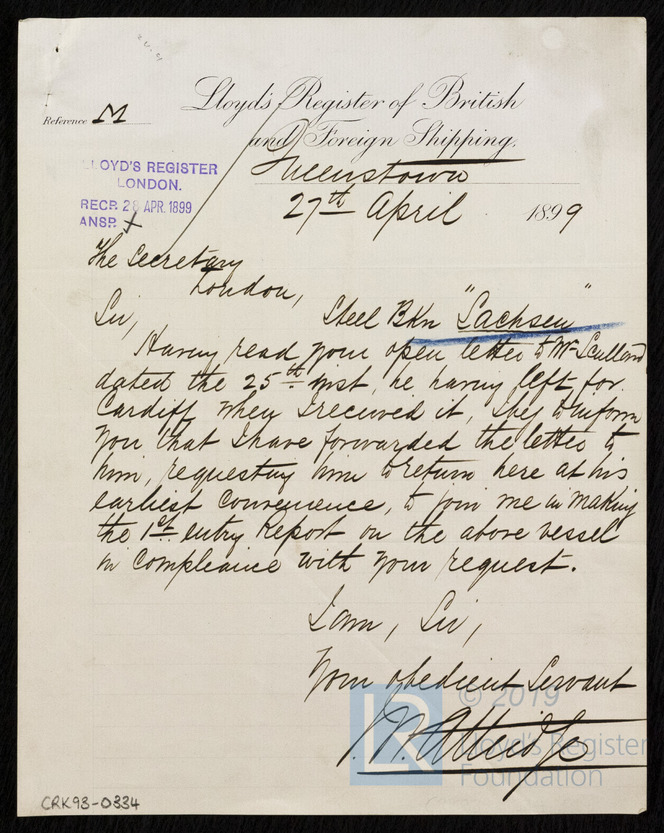 Lloyd's Register of British
Reference M
and Foreign Shipping.
Queenstown
LLOYD'S REGISTER
LONDON.
RECD. 28 APR. 1899
ANSD.
27th April 1899
The Secretary
London,
Sir, Steel Bkn "Sachsen"
Having read your open letter to Mr Scullard
dated the 25th inst, he having left for
Cardiff when I received it, I beg to inform
you that I have forwarded the letter to
him, requesting him to return here at his
earliest convenience, to join me in making
the 1st entry Report on the above vessel
in compliance with your request.
I am, Sir,
Your obedient Servant
J. W. Attridge
© 2019
LR Lloyd's Register
Foundation
CRK93-0334